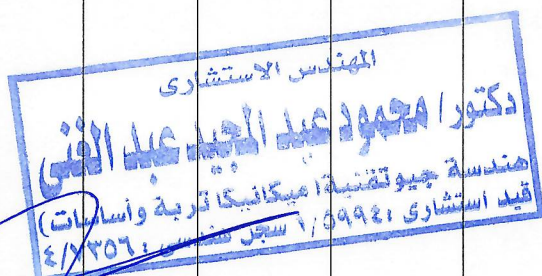 المهندس الاستشارى
دكتور / محمود عبد المجيد عبد الغنى
هندسة جيوتقنية (ميكانيكا تربة وأساسات)
قيد أستشارى : ١/٥٩٩٤ سجل هندسى : ٤/٢٣٥٦